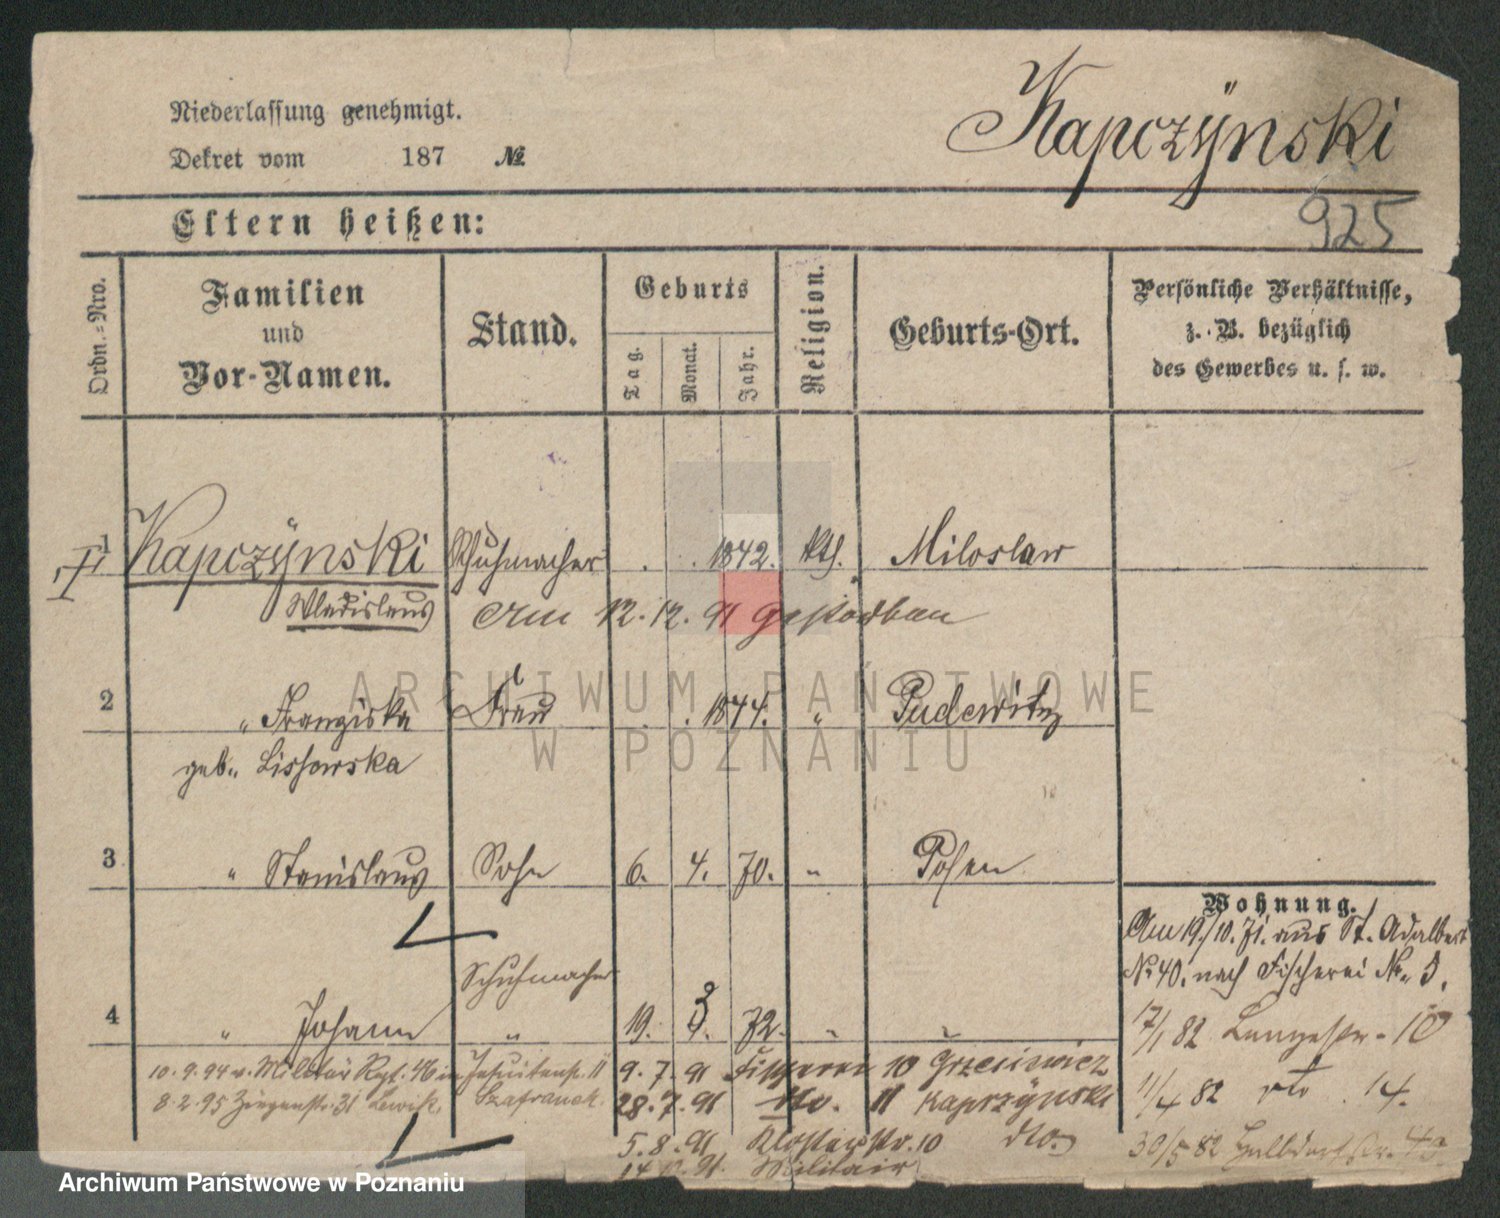 Niederlassung genehmigt.
Dekret vom 187 №
Kapczÿnski
925
Eltern heißen:
Ordn.=Nro.
Familien
und
Vor-Namen.
Stand.
Geburts
Tag.
Monat.
Jahr.
Religion.
Geburts-Ort.
Persönliche Verhältnisse,
z. B. bezüglich
des Gewerbes u. s. w.
1 Kapczÿnski Schuhmacher . . 1842. kth. Miloslaw
Wladislaus Am 12.12.91 gestorben
2 " Franziska Frau . . 1844. " Pudewitz
geb. Lissowska
3 " Stanislaus Sohn 6. 4. 70. " Posen
Schuhmacher
4 " Johann " 19. 3. 72. " "
Wohnung.
Am 19/10. 71. aus St. Adalbert
No 40. nach Fischerei No 3.
17/1 82 Langestr. 10
11/4 82 dto 14.
30/5 82 Halbdorfstr.
10.9.94 v. Militär Rgt. 46 in Jesuitenstr. 11
8.2.95 Ziegenstr. 31 Szafranek
9.7.91 Fischerei 10
28.7.91 No. 11 Kaprzÿnski
5.8.91 Klosterstr. 10 dto.
Militair
ARCHIWUM PAŃSTWOWE
W POZNANIU
Archiwum Państwowe w Poznaniu